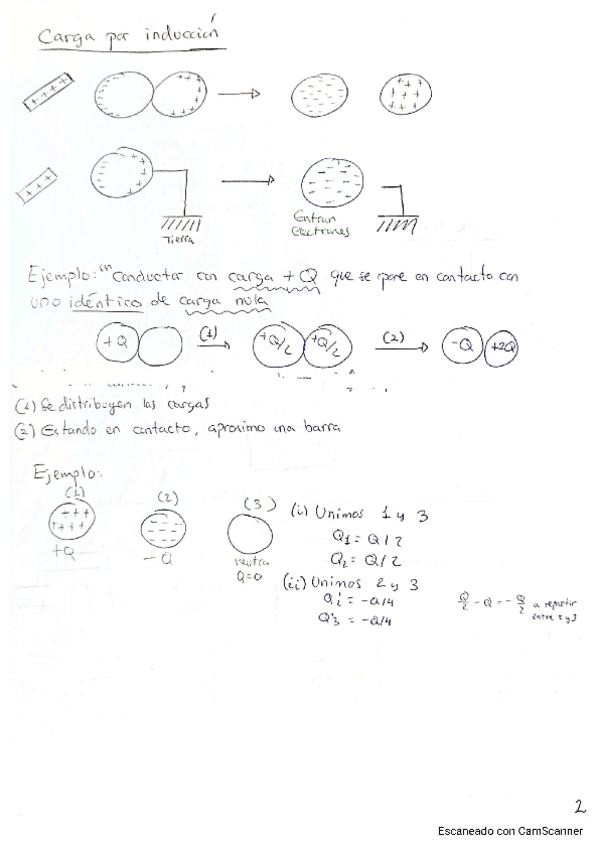 Carga por inducción
++++
+++
+++
+++
Tierra
Entran
electrones
Ejemplo: un Conductor con carga +Q que se pone en contacto con
uno idéntico de carga nula
+Q (1) +Q/2 +Q/2 (2) -Q +2Q
(1) Se distribuyen las cargas
(2) Estando en contacto, aproximo una barra
Ejemplo:
(1) (2) (3)
+Q -Q neutra
Q=0
(i) Unimos 1 y 3
Q1 = Q/2
Q2 = Q/2
(ii) Unimos 2 y 3
Q'2 = -Q/4
Q'3 = -Q/4
Q/2 - Q = -Q/2 a repartir
entre 2 y 3
2
Escaneado con CamScanner